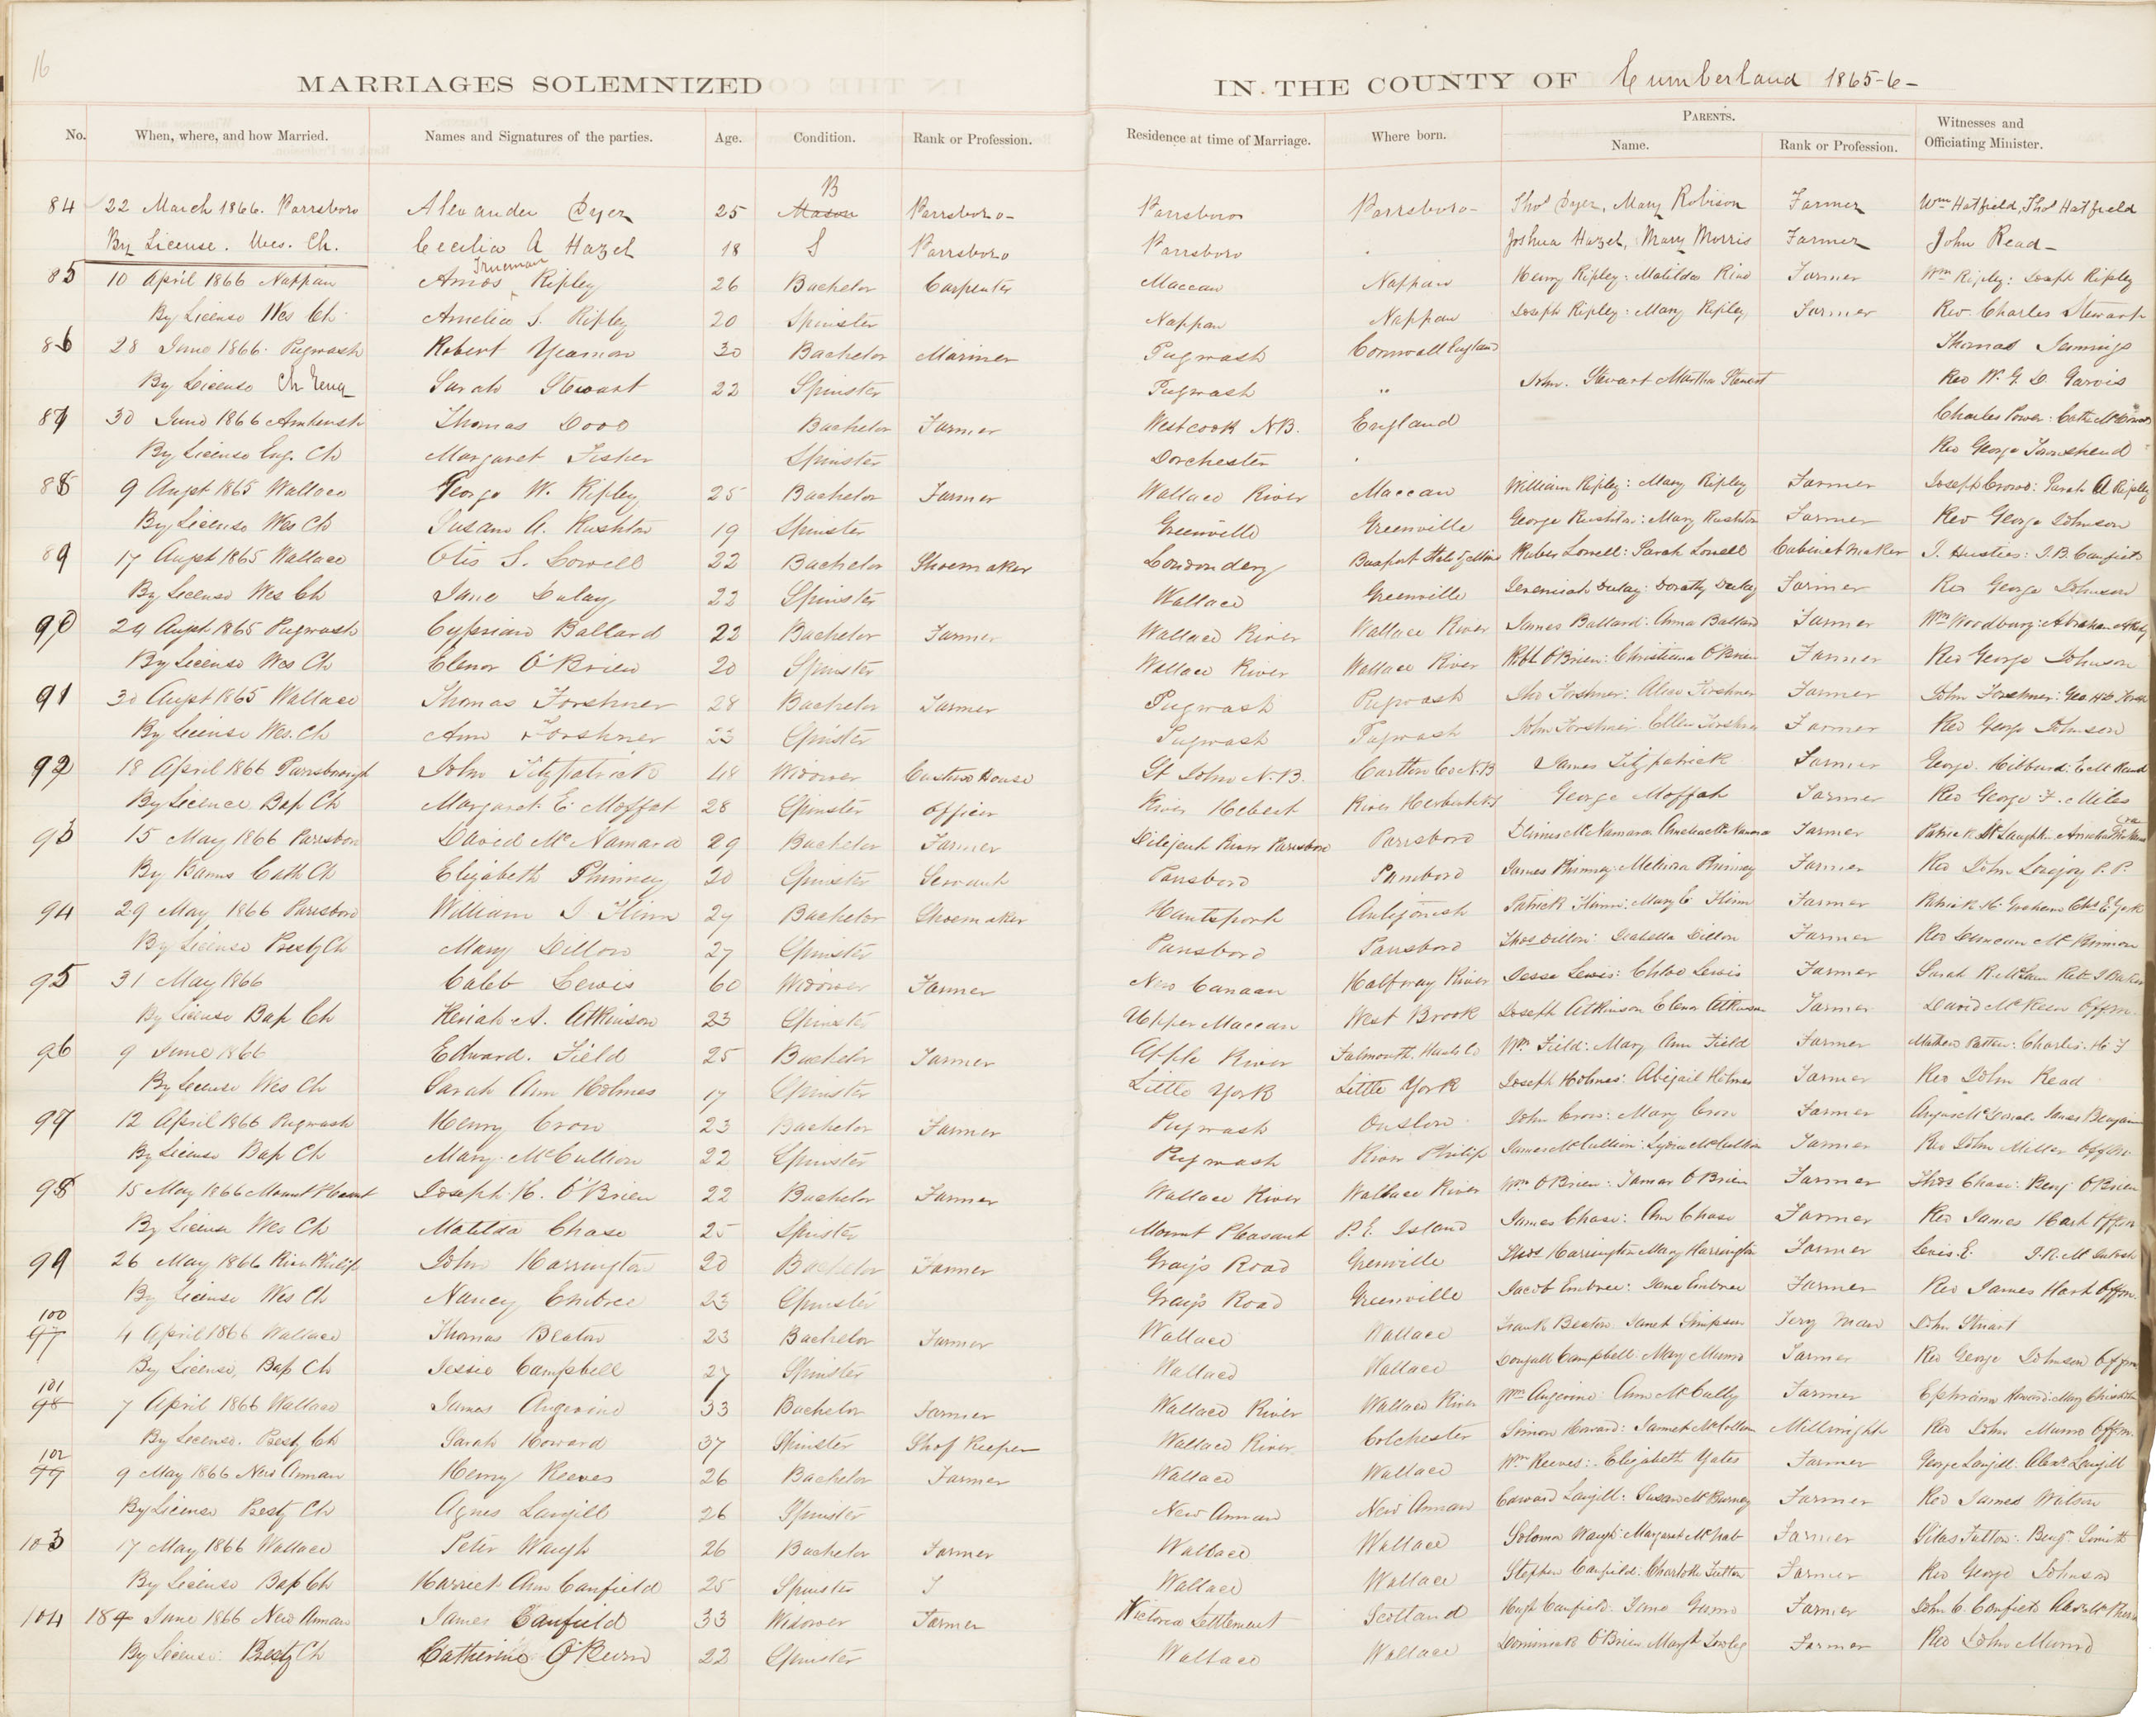 16
MARRIAGES SOLEMNIZED IN THE COUNTY OF Cumberland 1865-6-
No. When, where, and how Married. Names and Signatures of the parties. Age. Condition. Rank or Profession. Residence at time of Marriage. Where born. PARENTS. Name. Rank or Profession. Witnesses and Officiating Minister.
84 22 March 1866. Parrsboro Alexander Dyer 25 Mason B Parrsboro- Parrsboro Parrsboro- Thos Dyer, Mary Robison Farmer Wm Hatfield, Thos Hatfield
By License. Wes. Ch. Cecilia A Hazel 18 S Parrsboro Parrsboro Joshua Hazel, Mary Morris Farmer John Read-
85 10 April 1866 Nappan Amos Trueman Ripley 26 Bachelor Carpenter Maccan Nappan Henry Ripley: Matilda Farmer Wm Ripley: Joseph Ripley
By License Wes Ch Amelia S. Ripley 20 Spinster Nappan Nappan Joseph Ripley: Mary Ripley Farmer Rev. Charles Stewart
86 28 June 1866. Pugwash Robert Yeamon 30 Bachelor Mariner Pugwash Cornwall England Thomas Jennings
By License Ch Eng Sarah Stewart 22 Spinster Pugwash " John. Stewart Martha Stewart Rev W. G. D. Jarvis
87 30 June 1866 Amherst Thomas Bachelor Farmer Westcook N.B. England Charles Power:
By License Eng. Ch Margaret Fisher Spinster Dorchester Rev George Townshend
88 9 Augst 1865 Wallace George W. Ripley 25 Bachelor Farmer Wallace River Maccan William Ripley: Mary Ripley Farmer Joseph Crowe: Sarah A Ripley
By License Wes Ch Susan A. Rushton 19 Spinster Greenville Greenville George Rushton: Mary Rushton Farmer Rev George Johnson
89 17 Augst 1865 Wallace Otis S. Lowell 22 Bachelor Shoemaker Londondery Lowell: Sarah Lowell Cabinet maker
By License Wes Ch Jane Dulay 22 Spinster Wallace Greenville Jeremiah Dulay: Dorathy Dulay Farmer Rev George Johnson
90 24 Augst 1865 Pugwash Cyprian Ballard 22 Bachelor Farmer Wallace River Wallace River James Ballard: Anna Ballard Farmer Wm Woodbury:
By License Wes Ch Elenor O'Brien 20 Spinster Wallace River Wallace River Robt O'Brien: Christiana O'Brien Farmer Rev George Johnson
91 30 Augst 1865 Wallace Thomas Forshner 28 Bachelor Farmer Pugwash Pugwash Tho Forshner: Alice Forshner Farmer John Forshner:
By License Wes. Ch Ann Forshner 23 Spinster Pugwash Pugwash John Forshner: Ellen Forshner Farmer Rev George Johnson
92 18 April 1866 Parrsborough John Fitzpatrick 48 Widower Custom House St John N.B. Carlton Co N.B James Fitzpatrick Farmer George. Hibbard:
By Licence Bap Ch Margaret. E. Moffat 28 Spinster officer River Hebert River Herbert George Moffat Farmer Rev George F. Miles
93 15 May 1866 Parrsboro David Mc Namara 29 Bachelor Farmer Diligent River Parrsboro Parrsboro Mc Namara Farmer
By Banns Cath Ch Elizabeth Phinney 20 Spinster Servant Parrsboro Parrsboro James Phinney: Farmer Rev John P. P.
94 29 May 1866 Parrsboro William J Flinn 27 Bachelor Shoemaker Hantsport Antigonish Patrick Flinn: Mary C Flinn Farmer
By License Presty Ch Mary Dillon 27 Spinster Parrsboro Parrsboro Thos Dillon: Isabella Dillon Farmer Rev Duncan Mc Kinnon
95 31 May 1866 Caleb Lewis 60 Widower Farmer New Canaan Halfway River Jesse Lewis: Chloe Lewis Farmer
By License Bap Ch Keziah A. Atkinson 23 Spinster Upper Maccan West Brook Joseph Atkinson Elenor Atkinson Farmer David McKeen Offm.
96 9 June 1866 Edward. Field 25 Bachelor Farmer Apple River Falmouth. Hants Co Wm Field: Mary Ann Field Farmer
By License Wes Ch Sarah Ann Holmes 17 Spinster Little York Little York Joseph Holmes: Abigail Holmes Farmer Rev John Read
97 12 April 1866 Pugwash Henry Crow 23 Bachelor Farmer Pugwash Onslow John Crow: Mary Crow Farmer
By License Bap Ch Mary. McCullion 22 Spinster Pugwash River Philip James McCullion: Lydia McCullion Farmer Rev John Miller Offm.
98 15 May 1866 Mount Pleasant Joseph. H. O'Brien 22 Bachelor Farmer Wallace River Wallace River Wm O'Brien: Tamar O'Brien Farmer Thos Chase: Benj O'Brien
By License Wes Ch Matilda Chase 25 Spinster Mount Pleasant P. E. Island James Chase: Ann Chase Farmer Rev James Hart Offm
99 26 May 1866 River Philip John Harrington 20 Bachelor Farmer Gray's Road Grenville Thos Harrington Mary Harrington Farmer Lewis E.
By License Wes Ch Nancy Embree 23 Spinster Gray's Road Greenville Jacob Embree: Jane Embree Farmer Rev James Hart Offm.
100 97 4 April 1866 Wallace Thomas Beaton 23 Bachelor Farmer Wallace Wallace Frank Beaton: Janet Simpson Fery man John Stuart
By License, Bap Ch Jessie Campbell 27 Spinster Wallace Wallace Dougall Campbell: Mary Munro Farmer Rev George Johnson Offm
101 98 7 April 1866 Wallace James Angevine 33 Bachelor Farmer Wallace River Wallace River Wm Angevine: Ann McCully Farmer
By License. Presty Ch Sarah Howard 37 Spinster Shop Keeper Wallace River Colchester Simon Howard: Millwright Rev John Munro Offm.
102 99 9 May 1866 New Annan Henry Reeves 26 Bachelor Farmer Wallace Wallace Wm Reeves: Elizabeth Yates Farmer George Langill: Alexr Langill
By License Presty Ch Agnes Langill 26 Spinster New Annan New Annan Edward Langill: Susan McBurney Farmer Rev James Watson
103 17 May 1866 Wallace Peter Waugh 26 Bachelor Farmer Wallace Wallace Solomon Waugh: Margaret McNab Farmer Silas Tutton: Benjn Smith
By License Bap Ch Harriet Ann Canfield 25 Spinster Wallace Wallace Stephen Canfield: Charlotte Tutton Farmer Rev George Johnson
104 184 June 1866 New Annan James Canfield 33 Widower Farmer Victoria Settlement Scotland Hugh Canfield: Farmer John C. Canfield
By License: Presty Ch Catherine O'Brien 22 Spinster Wallace Wallace O'Brien Farmer Rev John Munro